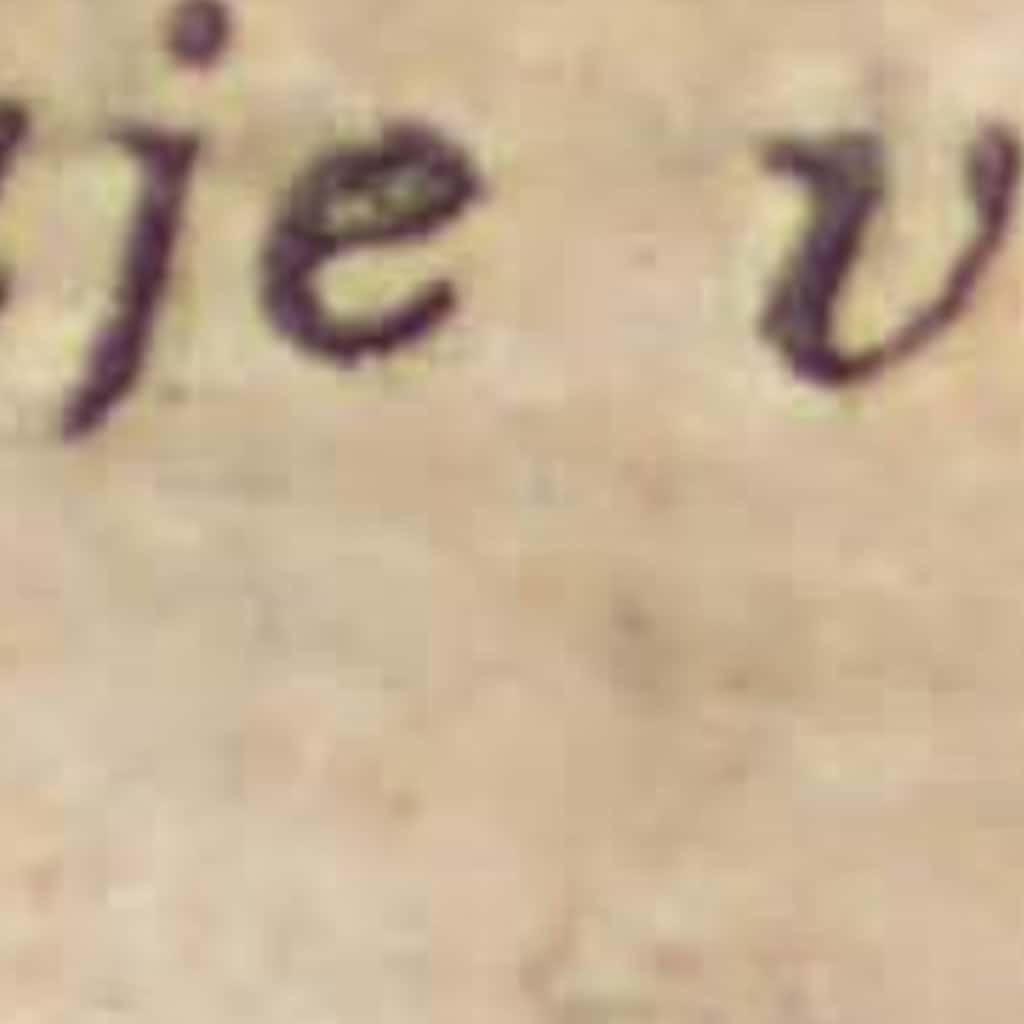 je v